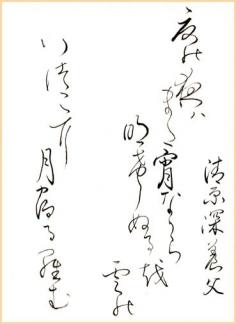 清原深養父
夏の夜は
また宵なから
明けぬるを
雲の
いつこに
月宿るらむ